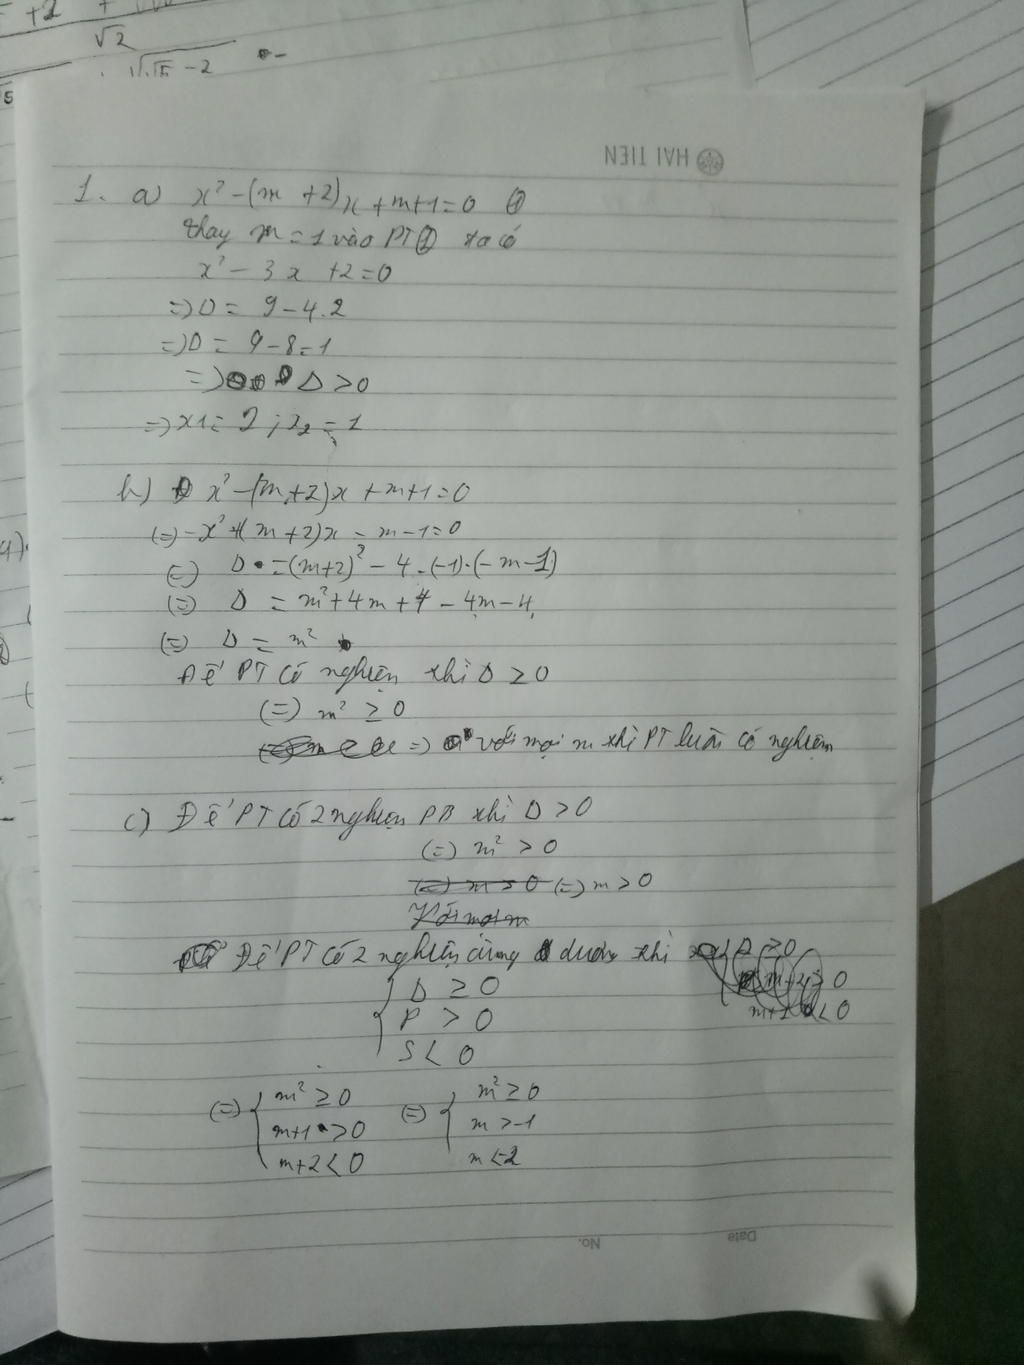 +2 +
√2
√√5 - 2
HAI TIEN
1. a) x² - (m + 2)x + m+1=0 ①
thay m = 1 vào PT① ta có
x² - 3x + 2 = 0
=> Δ = 9 - 4.2
=> Δ = 9 - 8 = 1
=> Δ > 0
=> x1 = 2 ; x₂ = 1
b) x² - (m+2)x + m+1=0
(=) -x² +(m+2)x - m-1=0
(=) Δ = (m+2)² - 4.(-1).(-m-1)
(=) Δ = m²+4m+4 - 4m-4
(=) Δ = m²
Để PT có nghiệm khi Δ ≥ 0
(=) m² ≥ 0
=> với mọi m thì PT luôn có nghiệm
c) Để PT có 2 nghiệm PB khi Δ > 0
(=) m² > 0
(=) m > 0 (=) m > 0
Với mọi m
Để PT có 2 nghiệm cùng dương khi Δ ≥ 0
m+2 > 0
m+1 < 0
Δ ≥ 0
P > 0
S < 0
(=) { m² ≥ 0 (=) { m² ≥ 0
m+1 > 0 m > -1
m+2 < 0 m < -2
No. Date